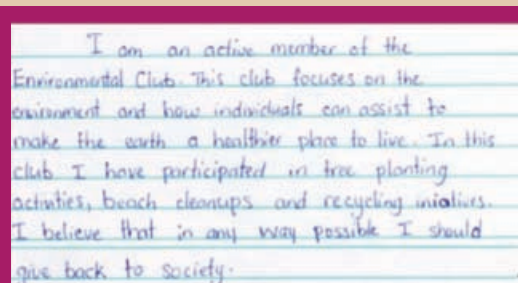 I am an active member of the
Environmental Club. This club focuses on the
environment and how individuals can assist to
make the earth a healthier place to live. In this
club I have participated in tree planting
activities, beach cleanups and recycling iniatives.
I believe that in any way possible I should
give back to society.